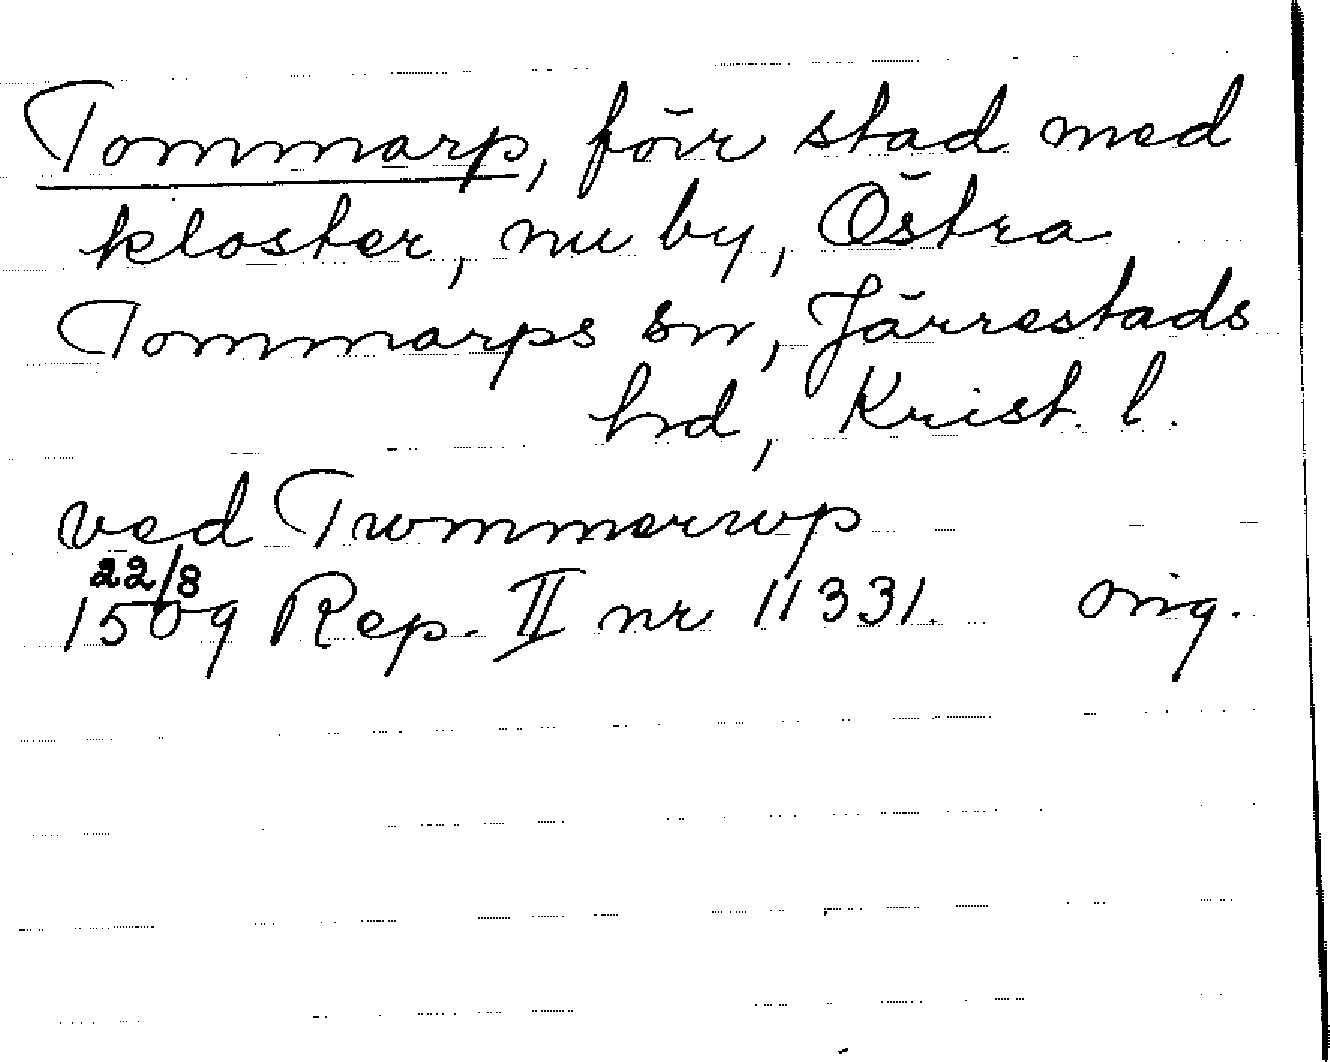 Tommarp, förr stad med
kloster, nu by, Östra
Tommarps sn, Järrestads
hd, Krist. l.
ved Twmmerwp
22/8
1509 Rep. II nr 11331. orig.